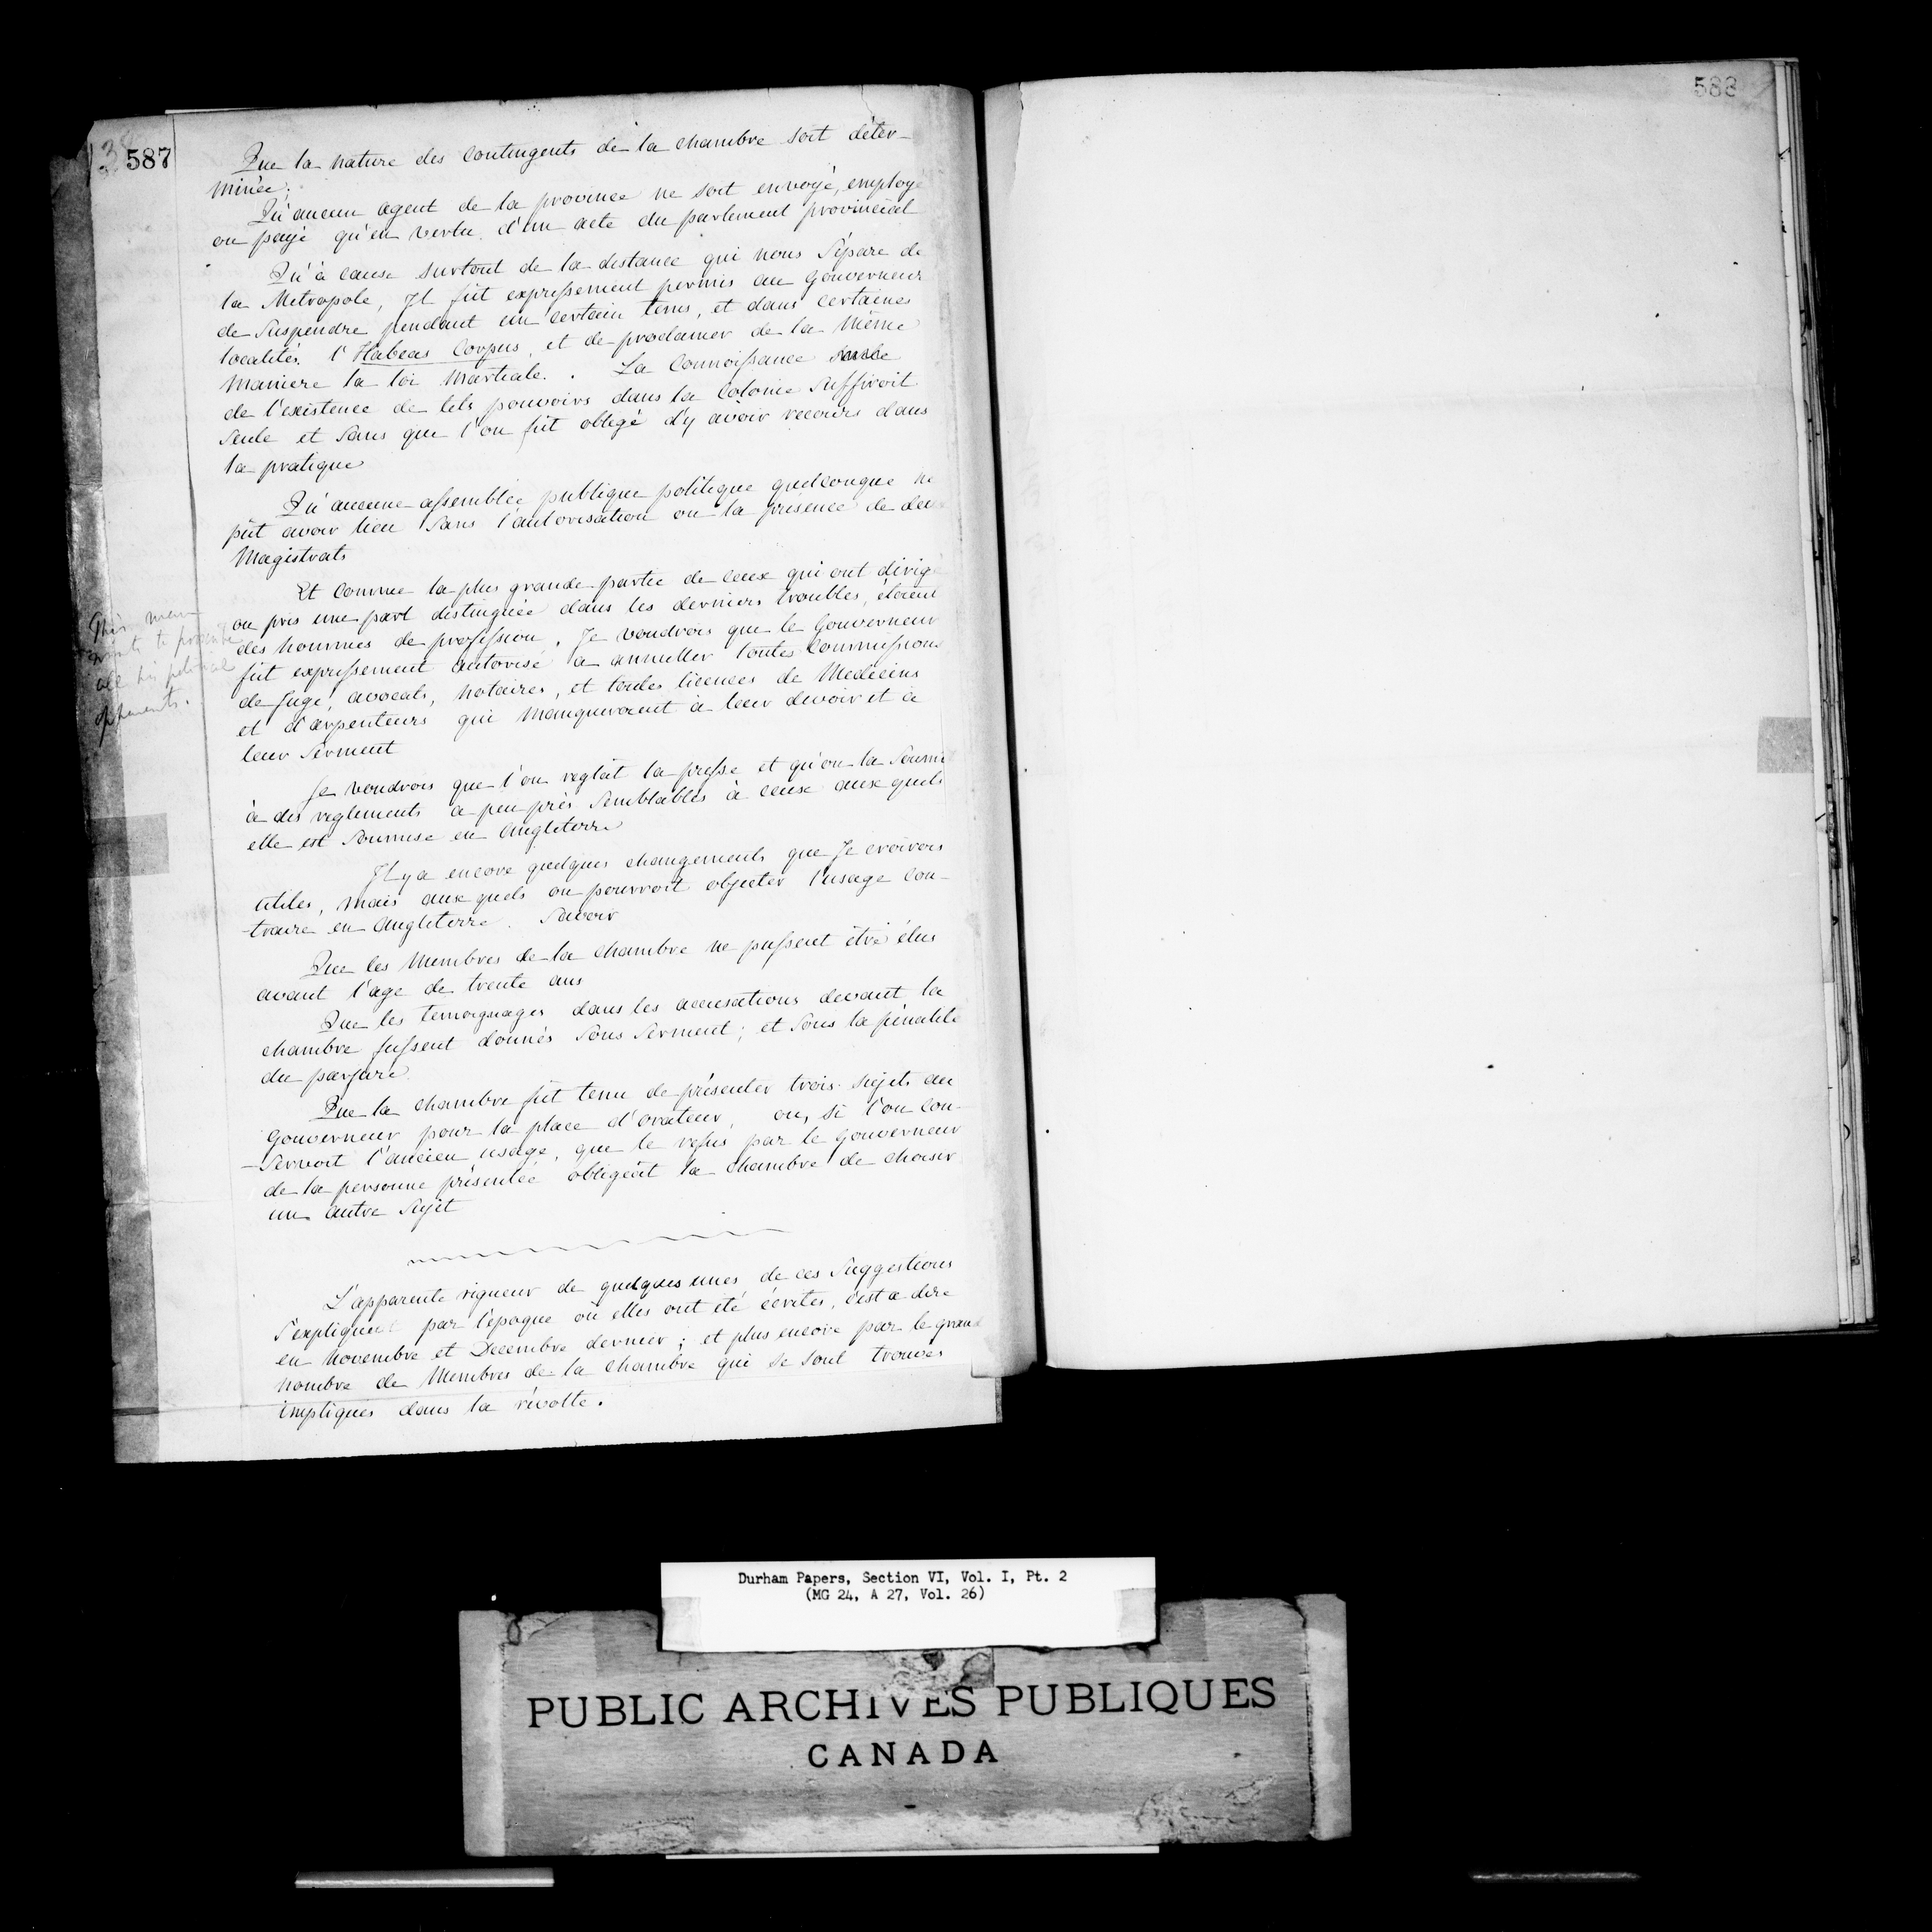 587
Que la nature des Contingents de la chambre soit déter-
minée;
Qu'aucun agent de la province ne soit envoyé, employé
ou payé qu'en vertu d'un acte du parlement provincial
Qu'à cause surtout de la distance qui nous Sépare de
la Metropole, Il fût expressement permis au Gouverneur
de Suspendre pendant un certain tems, et dans certaines
localités l'Habeas Corpus, et de proclamer de la Même
Maniere la loi Martiale. La Connoissance
de l'existence de tels pouvoirs dans la Colonie Suffiroit
Seule et Sans que l'on fût obligé d'y avoir recours dans
la pratique
Qu'aucune assemblée publique politique quelconque ne
pût avoir lieu Sans l'autorisation ou la présence de deux
Magistrats
Et Comme la plus grande partie de ceux qui ont dirigé
ou pris une part distinguée dans les derniers troubles, étoient
des hommes de profession, Je voudrois que le Gouverneur
fût expressement autorisé a annuller toutes Commissions
de Juge, avocats, notaires, et toutes licences de Medecins
et d'arpenteurs qui Manqueroient à leur devoir et à
leur Serment
This man
wants to proscribe
all his political
opponents.
Je voudrois que l'on reglât la presse et qu'on la Soumit
à des reglements a peu près Semblables à ceux aux quels
elle est Soumise en Angleterre
Il y a encore quelques changements que Je croirois
utiles, Mais aux quels on pourroit objecter l'usage Con-
-traire en Angleterre. Savoir
Que les Membres de la Chambre ne pussent être élus
avant l'age de trente ans
Que les temoignages dans les accusations devant la
chambre fussent donnés Sous Serment; et Sous la pénalité
du parjure
Que la chambre fût tenu de présenter trois Sujets au
Gouverneur pour la place d'orateur, ou, si l'on Con-
-Servoit l'ancien usage, que le refus par le Gouverneur
de la personne présentée obligeât la Chambre de choisir
un autre Sujet
L'apparente rigueur de quelques unes de ces Suggestions
S'expliquent par l'epoque où elles ont été écrites, c'est a dire
en Novembre et Decembre dernier; et plus encore par le grand
nombre de Membres de la Chambre qui se sont trouvés
impliqués dans la révolte.
588
Durham Papers, Section VI, Vol. I, Pt. 2
(MG 24, A 27, Vol. 26)
PUBLIC ARCHIVES PUBLIQUES
CANADA